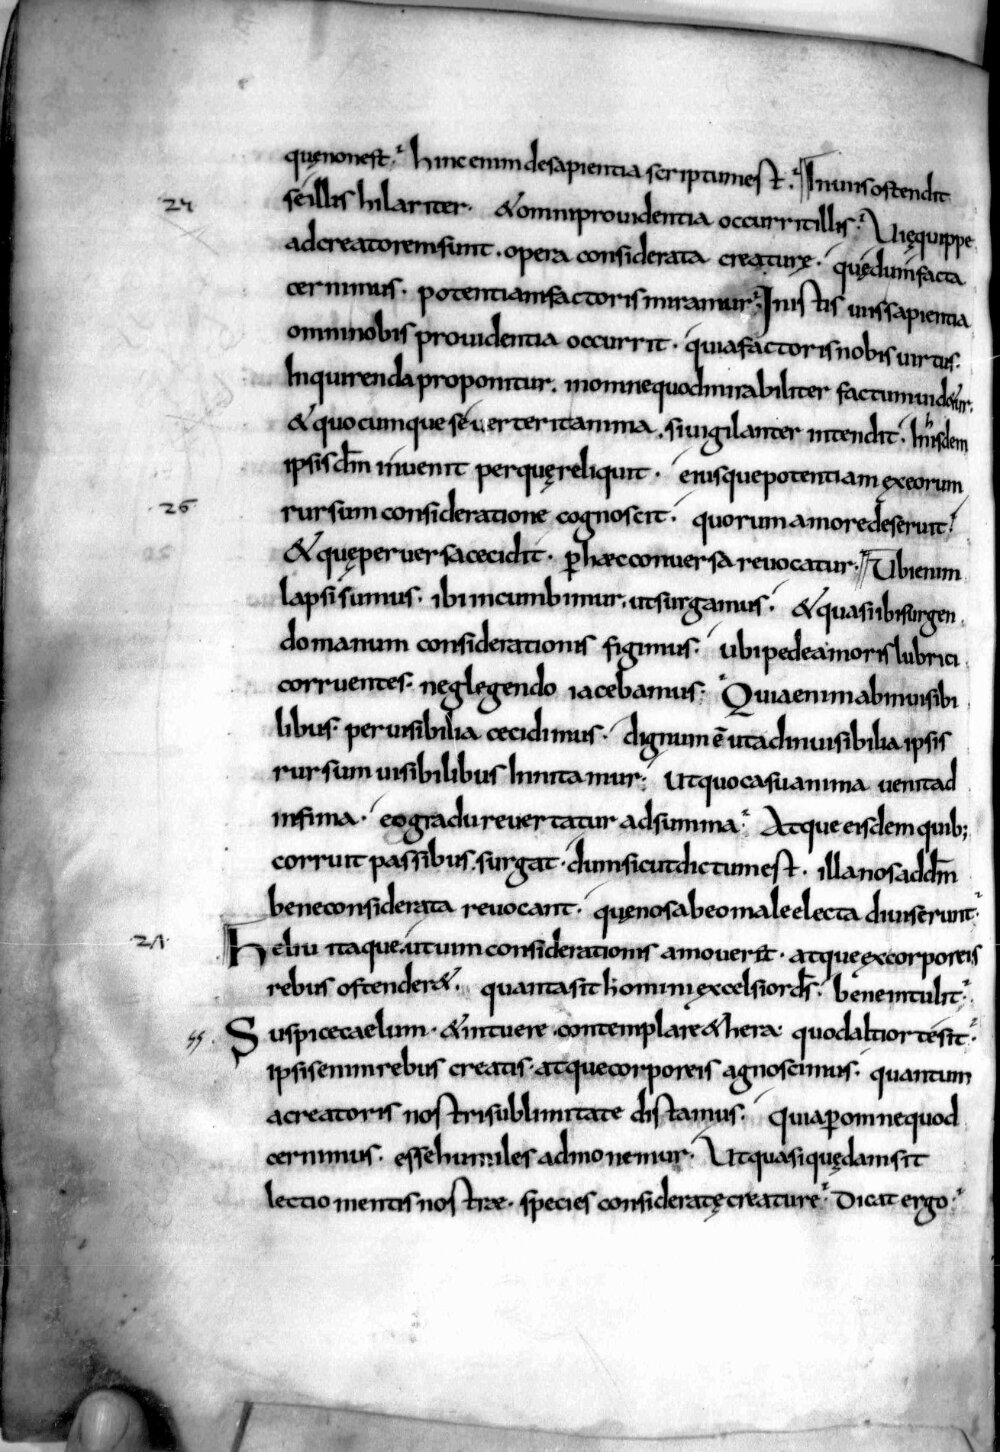 quęnonest. hinc enim desapientia scriptumest. Inuiisostendit
24
seillis hilariter. &omniprouidentia occurritillis. Uięquippe
adcreatoremsunt. opera considerata creaturę. quędumfacta
cernimus. potentiamfactorismiramur. Inistis uiissapientia
omninobis prouidentia occurrit. quiafactorisnobisuirtus.
Inquirendaproponitur. inomnequodmirabiliter factumuid&ur.
& quocumque seuerteritanima. siuigilanter intendit. Iniisdem
ipsis dm̄ inuenit perquęreliquit. eiusquepotentiam ęxeorum
26
rursum consideratione cognoscit. quorum amoredeseruit.
& quęperuersacecidit. ꝑ hæcconuersa reuocatur. Ubienim
lapsi sumus. ibi incumbimur. utsurgamus. & quasiibisurgen
do manum considerationis figimus. ubipedeamorislubrici
corruentes. neglegendo iacebamus. Quiaenimabinuisibi
libus. peruisibilia cecidimus. dignum ē utadinuisibilia ipsis
rursum uisibilibus Innitamur. Utquocasuanima uenitad
infima. eogradureuertatur adsumma. Atque eisdem quib;
corruit passibus. surgat. dumsicutdictumest. illanosaddm̄
beneconsiderata reuocant. quęnosabeomaleelecta diuiserunt.
21
heliu itaque. utuim considerationis amouerit. atqueęxcorporeis
rebus ostender&. quantasit hominięxcelsiords̄. beneintulit.
55
Suspicecaelum. &intuere. contemplare&hera. quodaltiortesit.
ipsisenimrebus creatis. atquecorporeis agnoscimus. quantum
acreatoris nostrisublimitate distamus. quiaꝑomnequod
cernimus. essehumiles admonemur. Utquasiquędamsit
lectio mentisnostræ. species consideratęcreaturę. Dicat ergo.